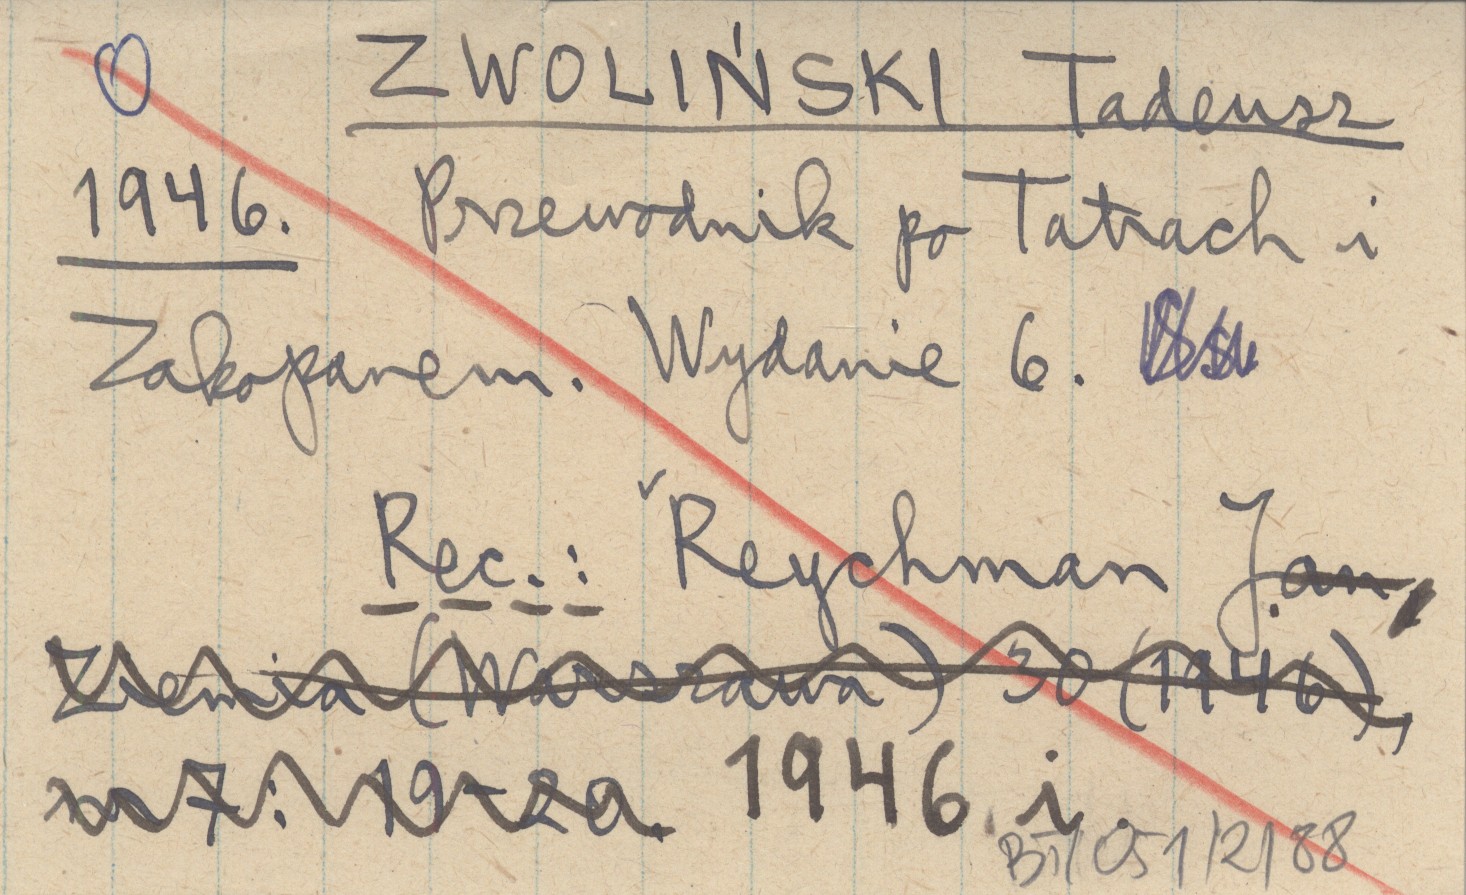 ZWOLIŃSKI Tadeusz
1946. Przewodnik po Tatrach i
Zakopanem. Wydanie 6.
Rec.: Reychman Jan,
Ziemia (Warszawa) 30 (1946),
nr 7: 19-20. 1946 i.
BT/051/2/88